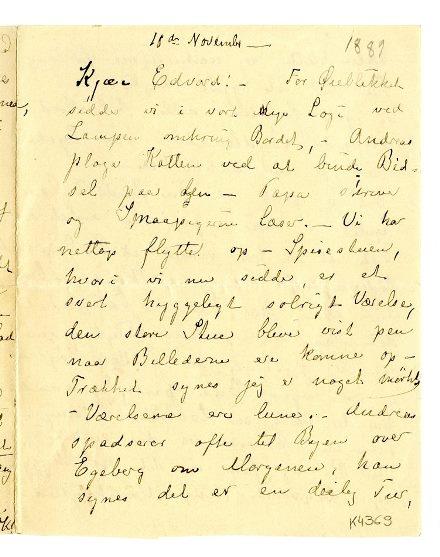 18de November —
1889
Kjære Edvard! — For Øieblikket
sidde vi i vort nye Logi ved
Lampen omkring Bordet, — Andreas
plage Katten ved at binde Bid-
sel paa den — Papa skrive
og Smaapigerne læser. — Vi har
nettop flytte op — Spisestuen,
hvori vi nu sidde, er et
svert hyggeligt solrigt Værelse,
den store Stue bleve vist pen
naar Billederne ere komne op —
Trækket synes jeg er noget mørkt,
— Værelserne ere lune. — Andreas
spadserer ofte til Byen over
Egeberg om Morgenen, han
synes det er en deilig Tur,
K4369